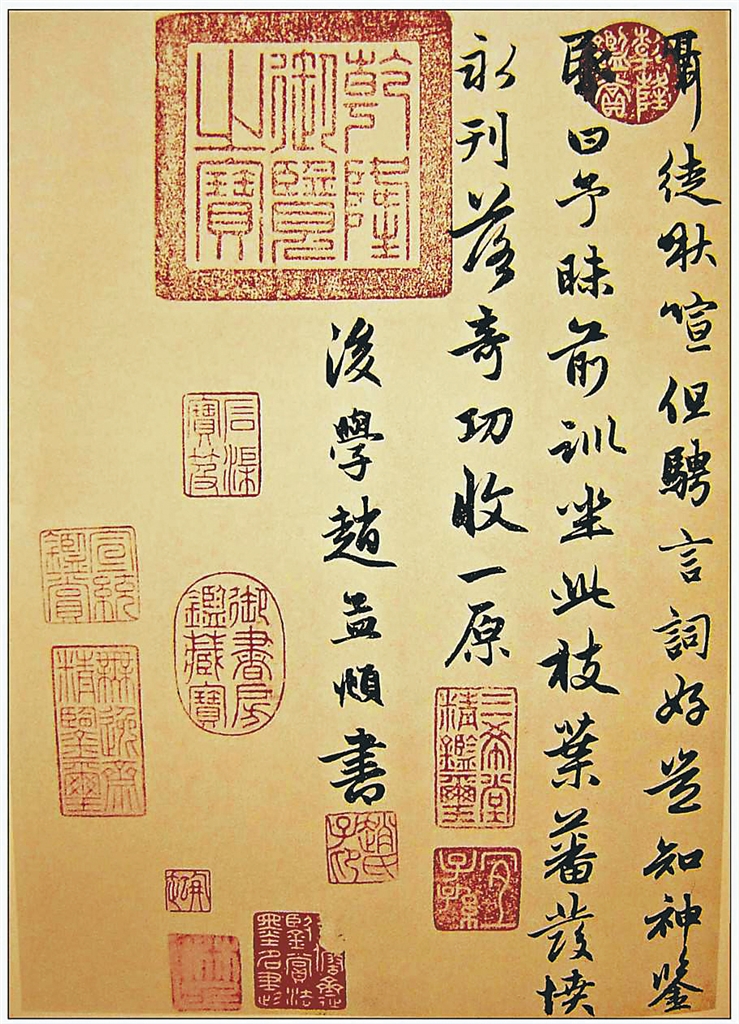 囁徒啾喧但騁言詞好豈知神鑒
昏曰予昧前訓坐此枝葉蕃發憤
永刊落奇功收一原
後學趙孟頫書
乾隆鑑賞
乾隆御覽之寶
三希堂精鑑璽
宜子孫
趙氏子昂
石渠寶笈
御書房鑑藏寶
宣統鑑賞
無逸齋精鑒璽